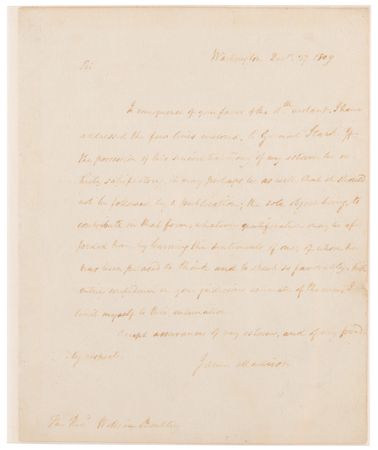 Washington Decr. 27. 1809
Sir
In consequence of your favor of the instant, I have
addressed the few lines inclosed, to General Stark. If
the possession of this sincere testimony of my esteem be
satisfactory, it may perhaps be as well that it should
not be followed by a publication; the sole object being to
contribute in that form, whatever gratification may be af-
forded him by learning the sentiments of one, of whom he
has been pleased to think and to speak so favorably. With
entire confidence in your judicious of the case, I
limit myself to this intimation.
Accept assurances of my esteem, and of my friend-
ly respects
James Madison
The Revd. William Bentley